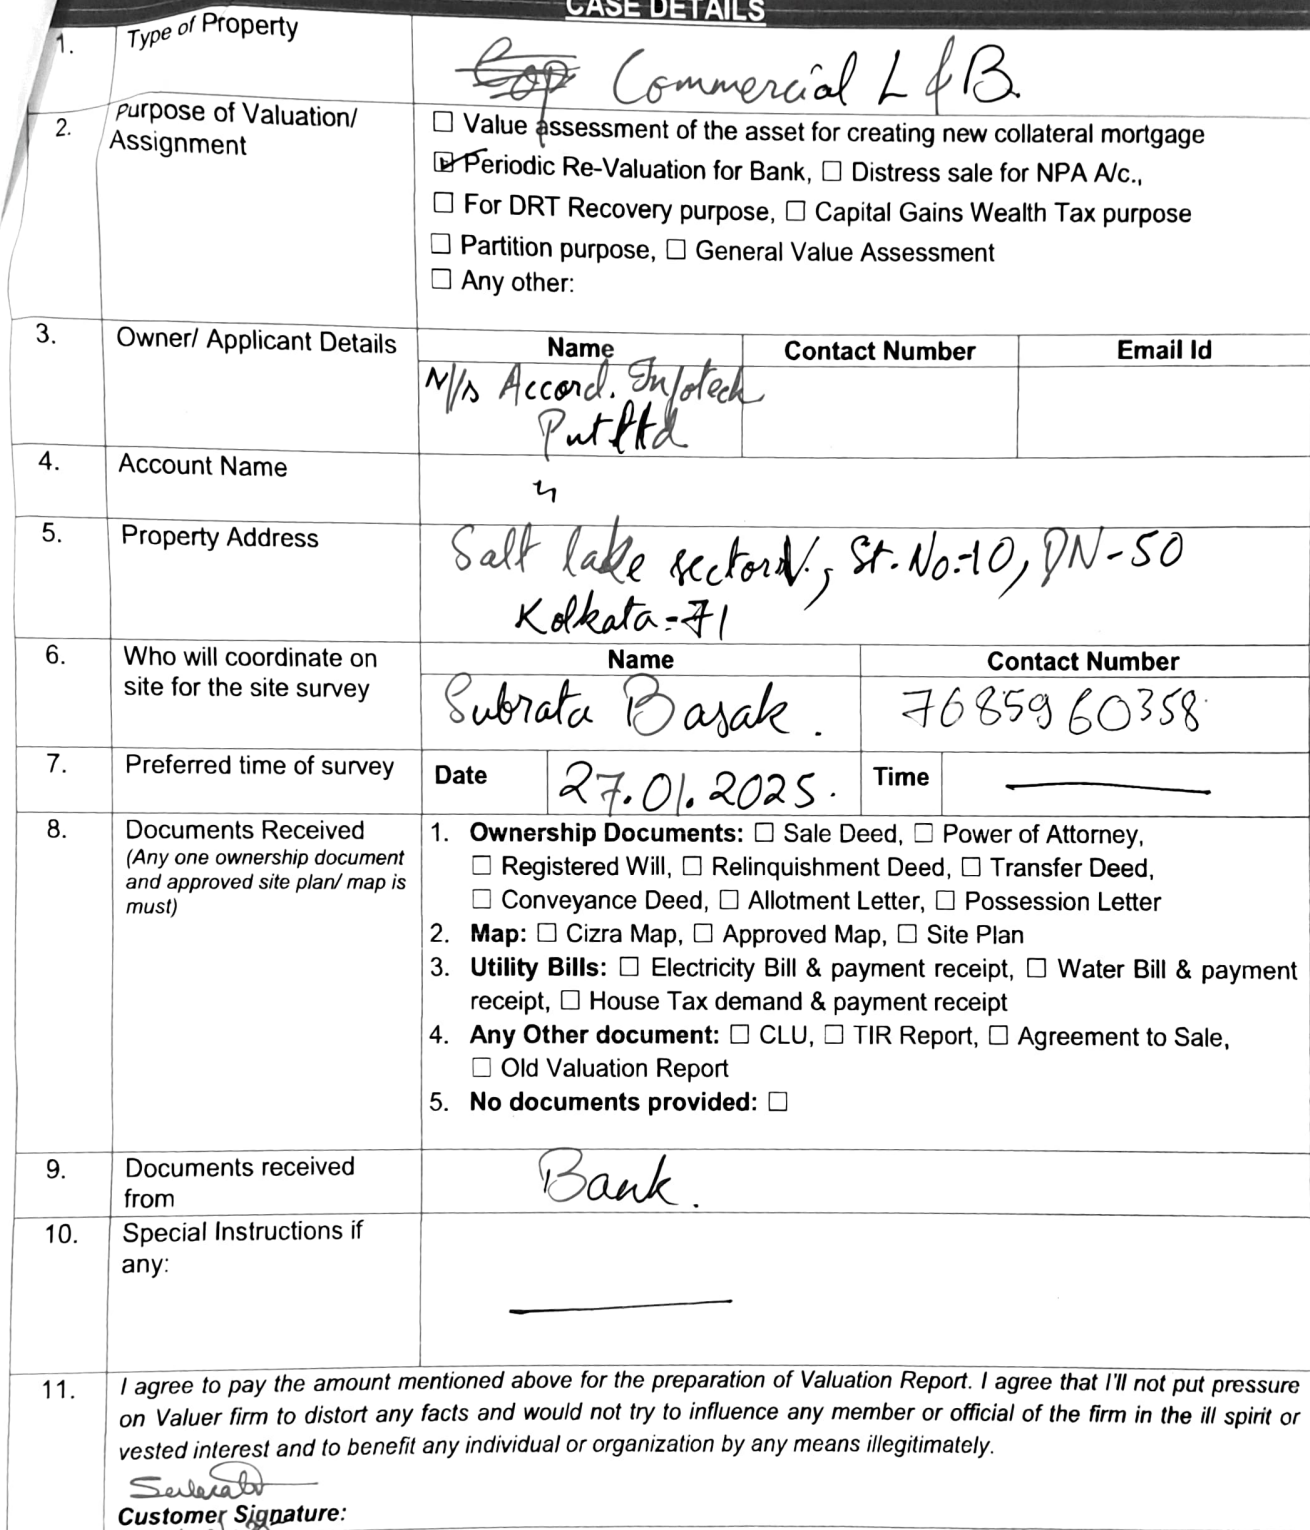 CASE DETAILS
1. Type of Property Commercial L & B.
2. Purpose of Valuation/ Assignment
☐ Value assessment of the asset for creating new collateral mortgage
☑ Periodic Re-Valuation for Bank, ☐ Distress sale for NPA A/c.,
☐ For DRT Recovery purpose, ☐ Capital Gains Wealth Tax purpose
☐ Partition purpose, ☐ General Value Assessment
☐ Any other:
3. Owner/ Applicant Details
Name Contact Number Email Id
M/s Accord. Infotech
Pvt Ltd
4. Account Name
5. Property Address
Salt lake sector V, St. No:-10, DN-50
Kolkata-71
6. Who will coordinate on
site for the site survey
Name Contact Number
Subrata Basak. 7685960358
7. Preferred time of survey Date 27.01.2025. Time
8. Documents Received
(Any one ownership document
and approved site plan/ map is
must)
1. Ownership Documents: ☐ Sale Deed, ☐ Power of Attorney,
☐ Registered Will, ☐ Relinquishment Deed, ☐ Transfer Deed,
☐ Conveyance Deed, ☐ Allotment Letter, ☐ Possession Letter
2. Map: ☐ Cizra Map, ☐ Approved Map, ☐ Site Plan
3. Utility Bills: ☐ Electricity Bill & payment receipt, ☐ Water Bill & payment
receipt, ☐ House Tax demand & payment receipt
4. Any Other document: ☐ CLU, ☐ TIR Report, ☐ Agreement to Sale,
☐ Old Valuation Report
5. No documents provided: ☐
9. Documents received
from
Bank.
10. Special Instructions if
any:
11. I agree to pay the amount mentioned above for the preparation of Valuation Report. I agree that I'll not put pressure
on Valuer firm to distort any facts and would not try to influence any member or official of the firm in the ill spirit or
vested interest and to benefit any individual or organization by any means illegitimately.
Customer Signature: